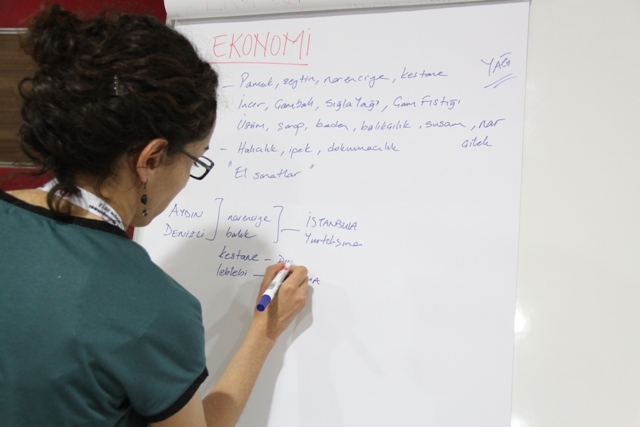 EKONOMİ
- Pamuk, zeytin, narenciye, kestane
İncir, Çambalı, Sığla Yağı, Çam Fıstığı
YAĞ
Üzüm, şarap, badem, balıkçılık, susam, nar
çilek
- Halıcılık, ipek, dokumacılık
"El sanatlar"
AYDIN
DENİZLİ
narenciye
balık
İSTANBULA
Yurtdışına
kestane -
leblebi -